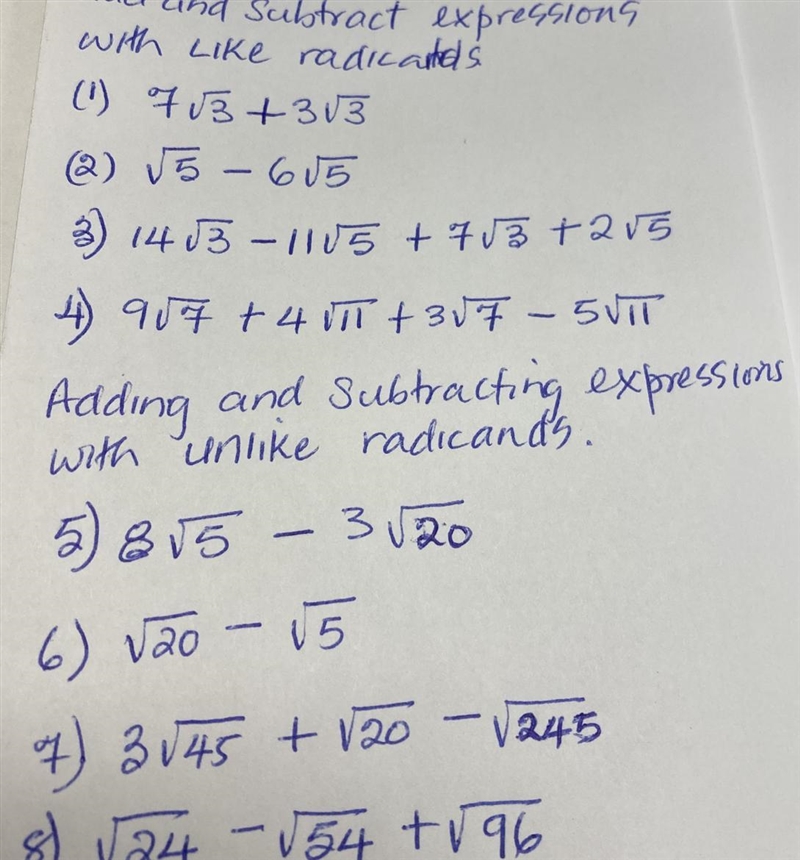 and Subtract expressions
with Like radicands
(1) 7√3 + 3√3
(2) √5 - 6√5
3) 14√3 - 11√5 + 7√3 + 2√5
4) 9√7 + 4√11 + 3√7 - 5√11
Adding and Subtracting expressions
with unlike radicands.
5) 8√5 - 3√20
6) √20 - √5
7) 3√45 + √20 - √245
8) √24 - √54 + √96